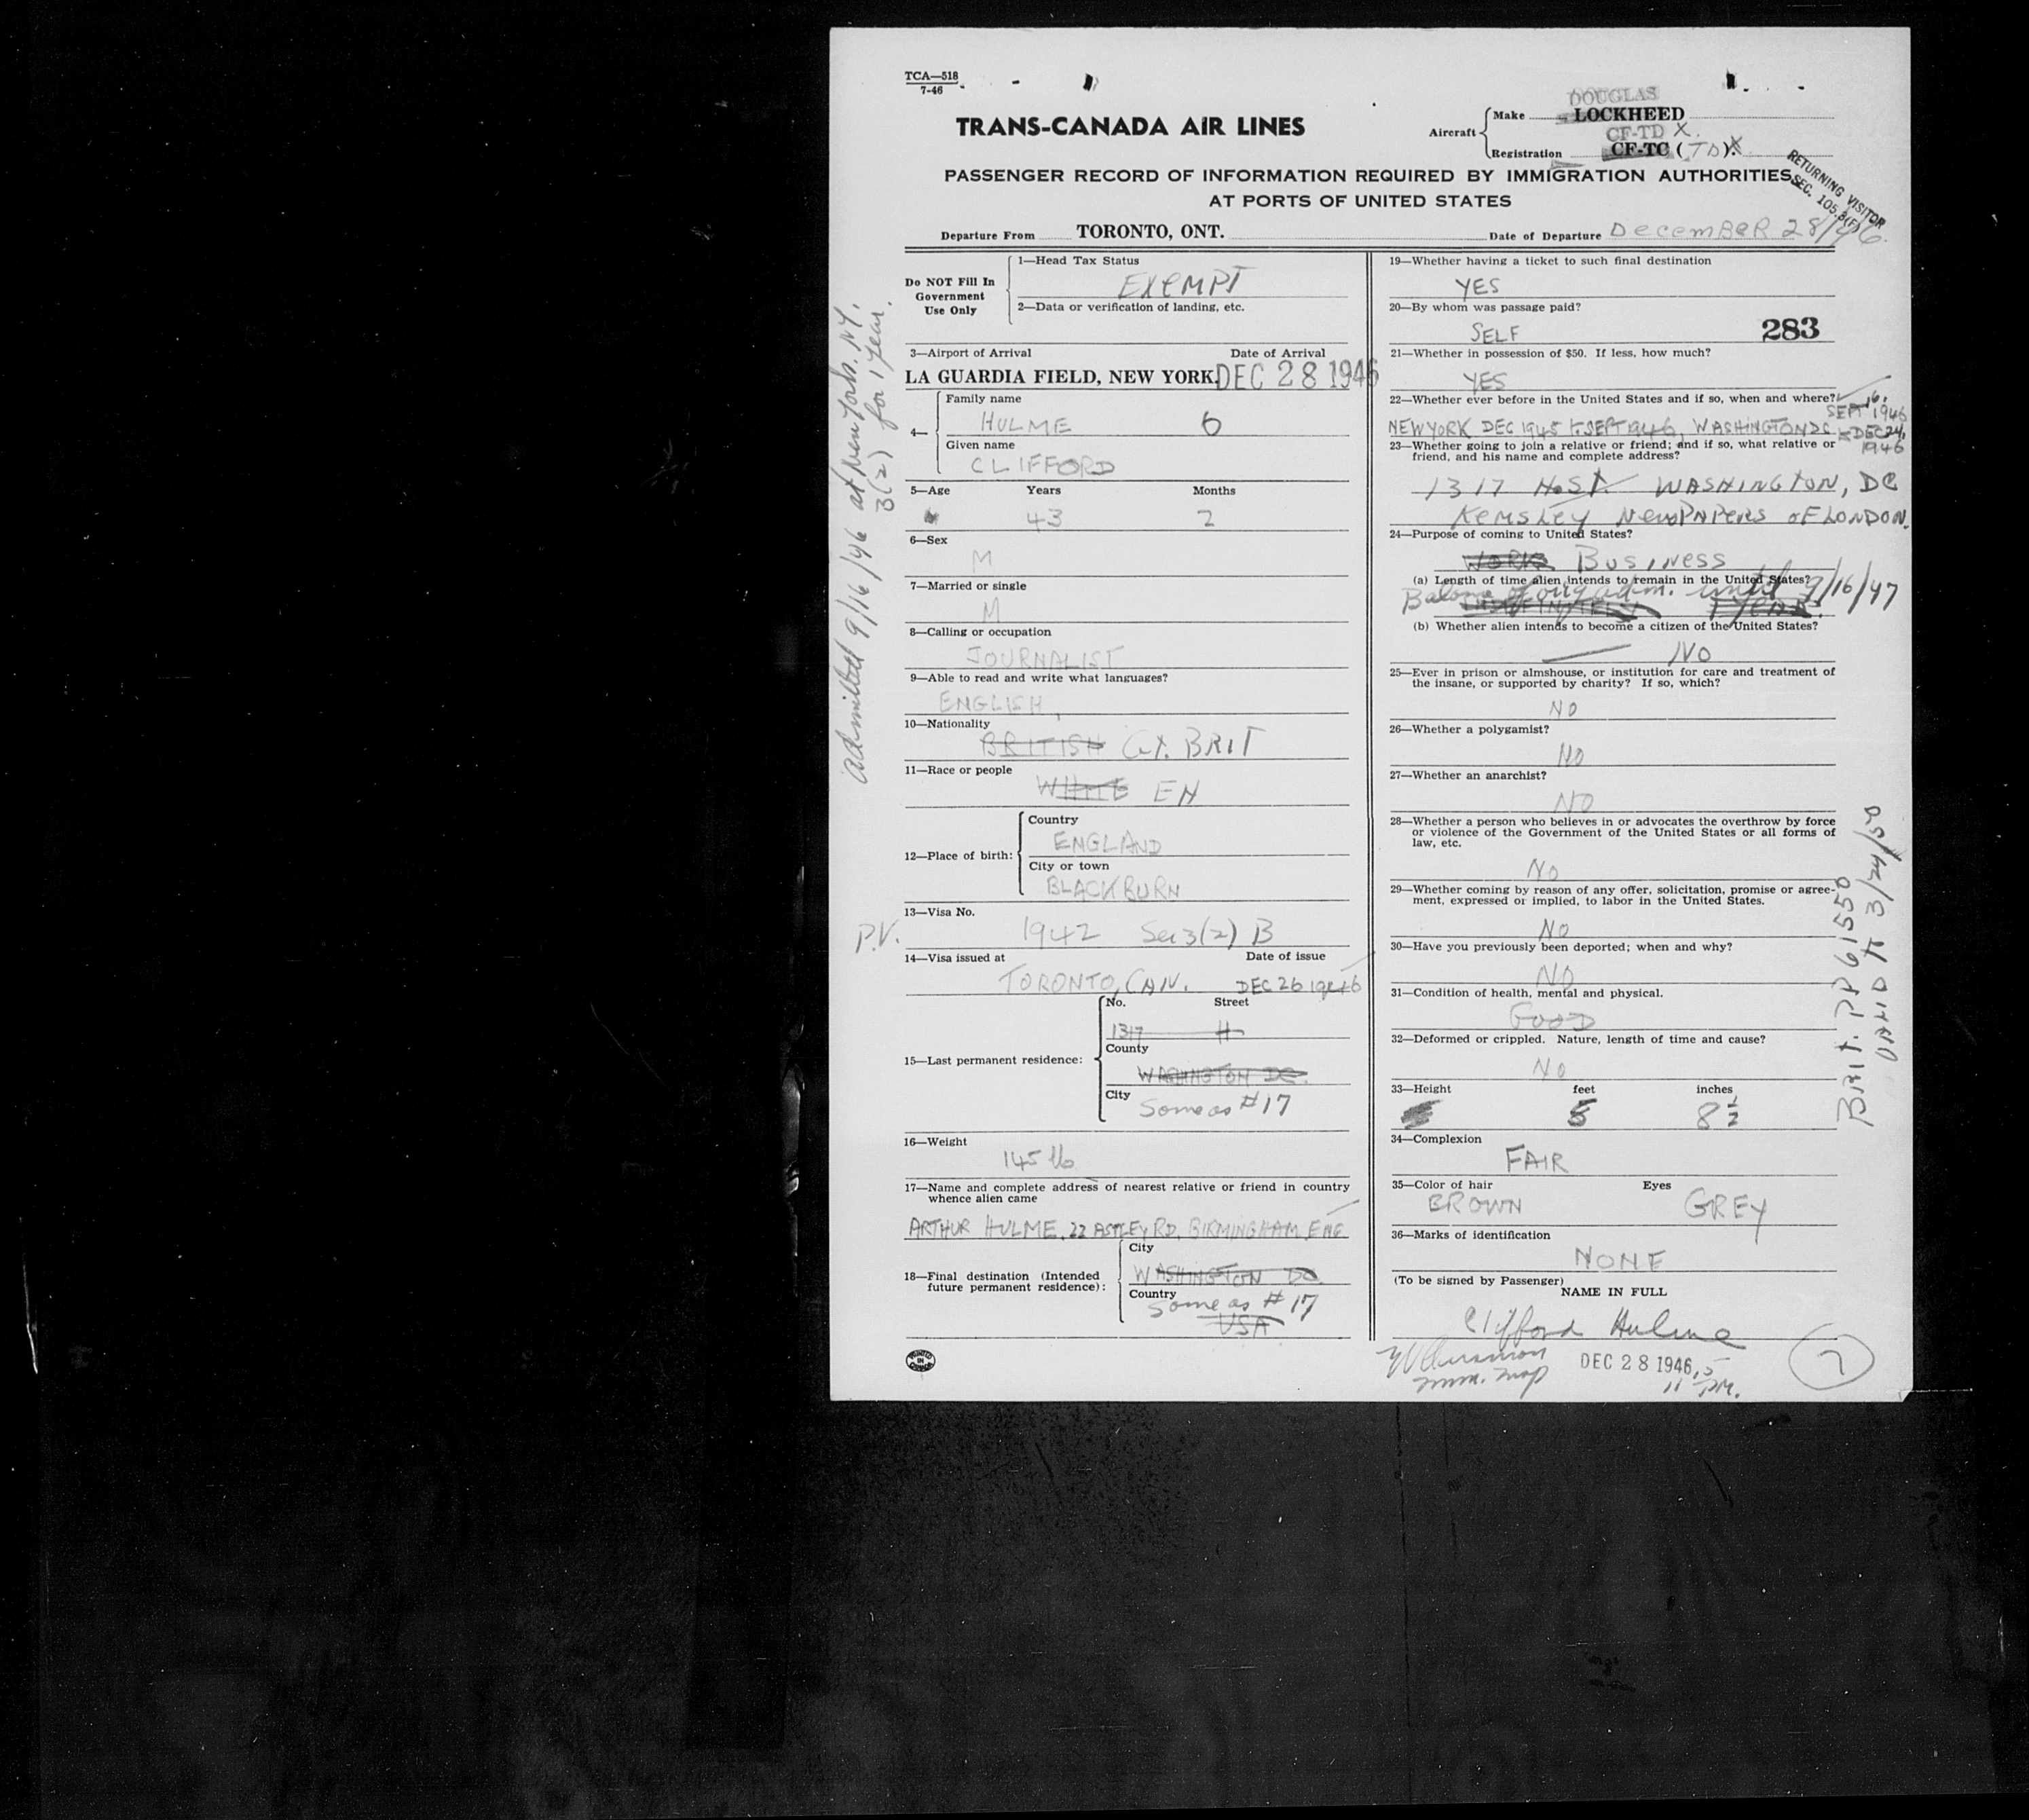 TCA—518
7-46
DOUGLAS
TRANS-CANADA AIR LINES
Aircraft
Make LOCKHEED
CF-TD X.
Registration CF-TC (TD)X
RETURNING VISITOR
SEC. 105.3(F)
PASSENGER RECORD OF INFORMATION REQUIRED BY IMMIGRATION AUTHORITIES
AT PORTS OF UNITED STATES
Departure From TORONTO, ONT. Date of Departure DECEMBER 28/46.
Admitted 9/16/46 at New York. NY.
3(2) for 1 year.
Do NOT Fill In
Government
Use Only
1—Head Tax Status
EXEMPT
2—Data or verification of landing, etc.
3—Airport of Arrival Date of Arrival
LA GUARDIA FIELD, NEW YORK. DEC 28 1946
4—
Family name
HULME 6
Given name
CLIFFORD
5—Age Years Months
43 2
6—Sex
M
7—Married or single
M
8—Calling or occupation
JOURNALIST
9—Able to read and write what languages?
ENGLISH
10—Nationality
BRITISH GT. BRIT
11—Race or people
WHITE EN
12—Place of birth:
Country
ENGLAND
City or town
BLACKBURN
13—Visa No.
P.V. 1942 Sec 3(2) B
14—Visa issued at Date of issue
TORONTO, CAN. DEC 26 1946
15—Last permanent residence:
No. Street
1317 H
County
WASHINGTON DC.
City
Same as #17
16—Weight
145 lb
17—Name and complete address of nearest relative or friend in country
whence alien came
ARTHUR HULME, 22 ASTLEY RD, BIRMINGHAM ENG
18—Final destination (Intended
future permanent residence):
City
WASHINGTON DC
Country
Same as #17
USA
PRINTED
IN
CANADA
19—Whether having a ticket to such final destination
YES
20—By whom was passage paid?
SELF 283
21—Whether in possession of $50. If less, how much?
YES
22—Whether ever before in the United States and if so, when and where?
SEPT 16, 1946
NEW YORK DEC 1945 SEPT 1946, WASHINGTON DC DEC 24, 1946
23—Whether going to join a relative or friend; and if so, what relative or
friend, and his name and complete address?
1317 H. ST. WASHINGTON, DC
KEMSLEY NEWSPAPERS OF LONDON.
24—Purpose of coming to United States?
WORK BUSINESS
(a) Length of time alien intends to remain in the United States?
Balance of orig adm. until 9/16/47
1 YEAR
(b) Whether alien intends to become a citizen of the United States?
NO
25—Ever in prison or almshouse, or institution for care and treatment of
the insane, or supported by charity? If so, which?
NO
26—Whether a polygamist?
NO
27—Whether an anarchist?
NO
28—Whether a person who believes in or advocates the overthrow by force
or violence of the Government of the United States or all forms of
law, etc.
NO
29—Whether coming by reason of any offer, solicitation, promise or agree-
ment, expressed or implied, to labor in the United States.
NO
30—Have you previously been deported; when and why?
NO
31—Condition of health, mental and physical.
GOOD
32—Deformed or crippled. Nature, length of time and cause?
NO
33—Height feet inches
5 8½
34—Complexion
FAIR
35—Color of hair Eyes
BROWN GREY
36—Marks of identification
NONE
(To be signed by Passenger)
NAME IN FULL
Clifford Hulme
DEC 28 1946
PM.
2
BRIT. PP 61550
VALID 3/24/50